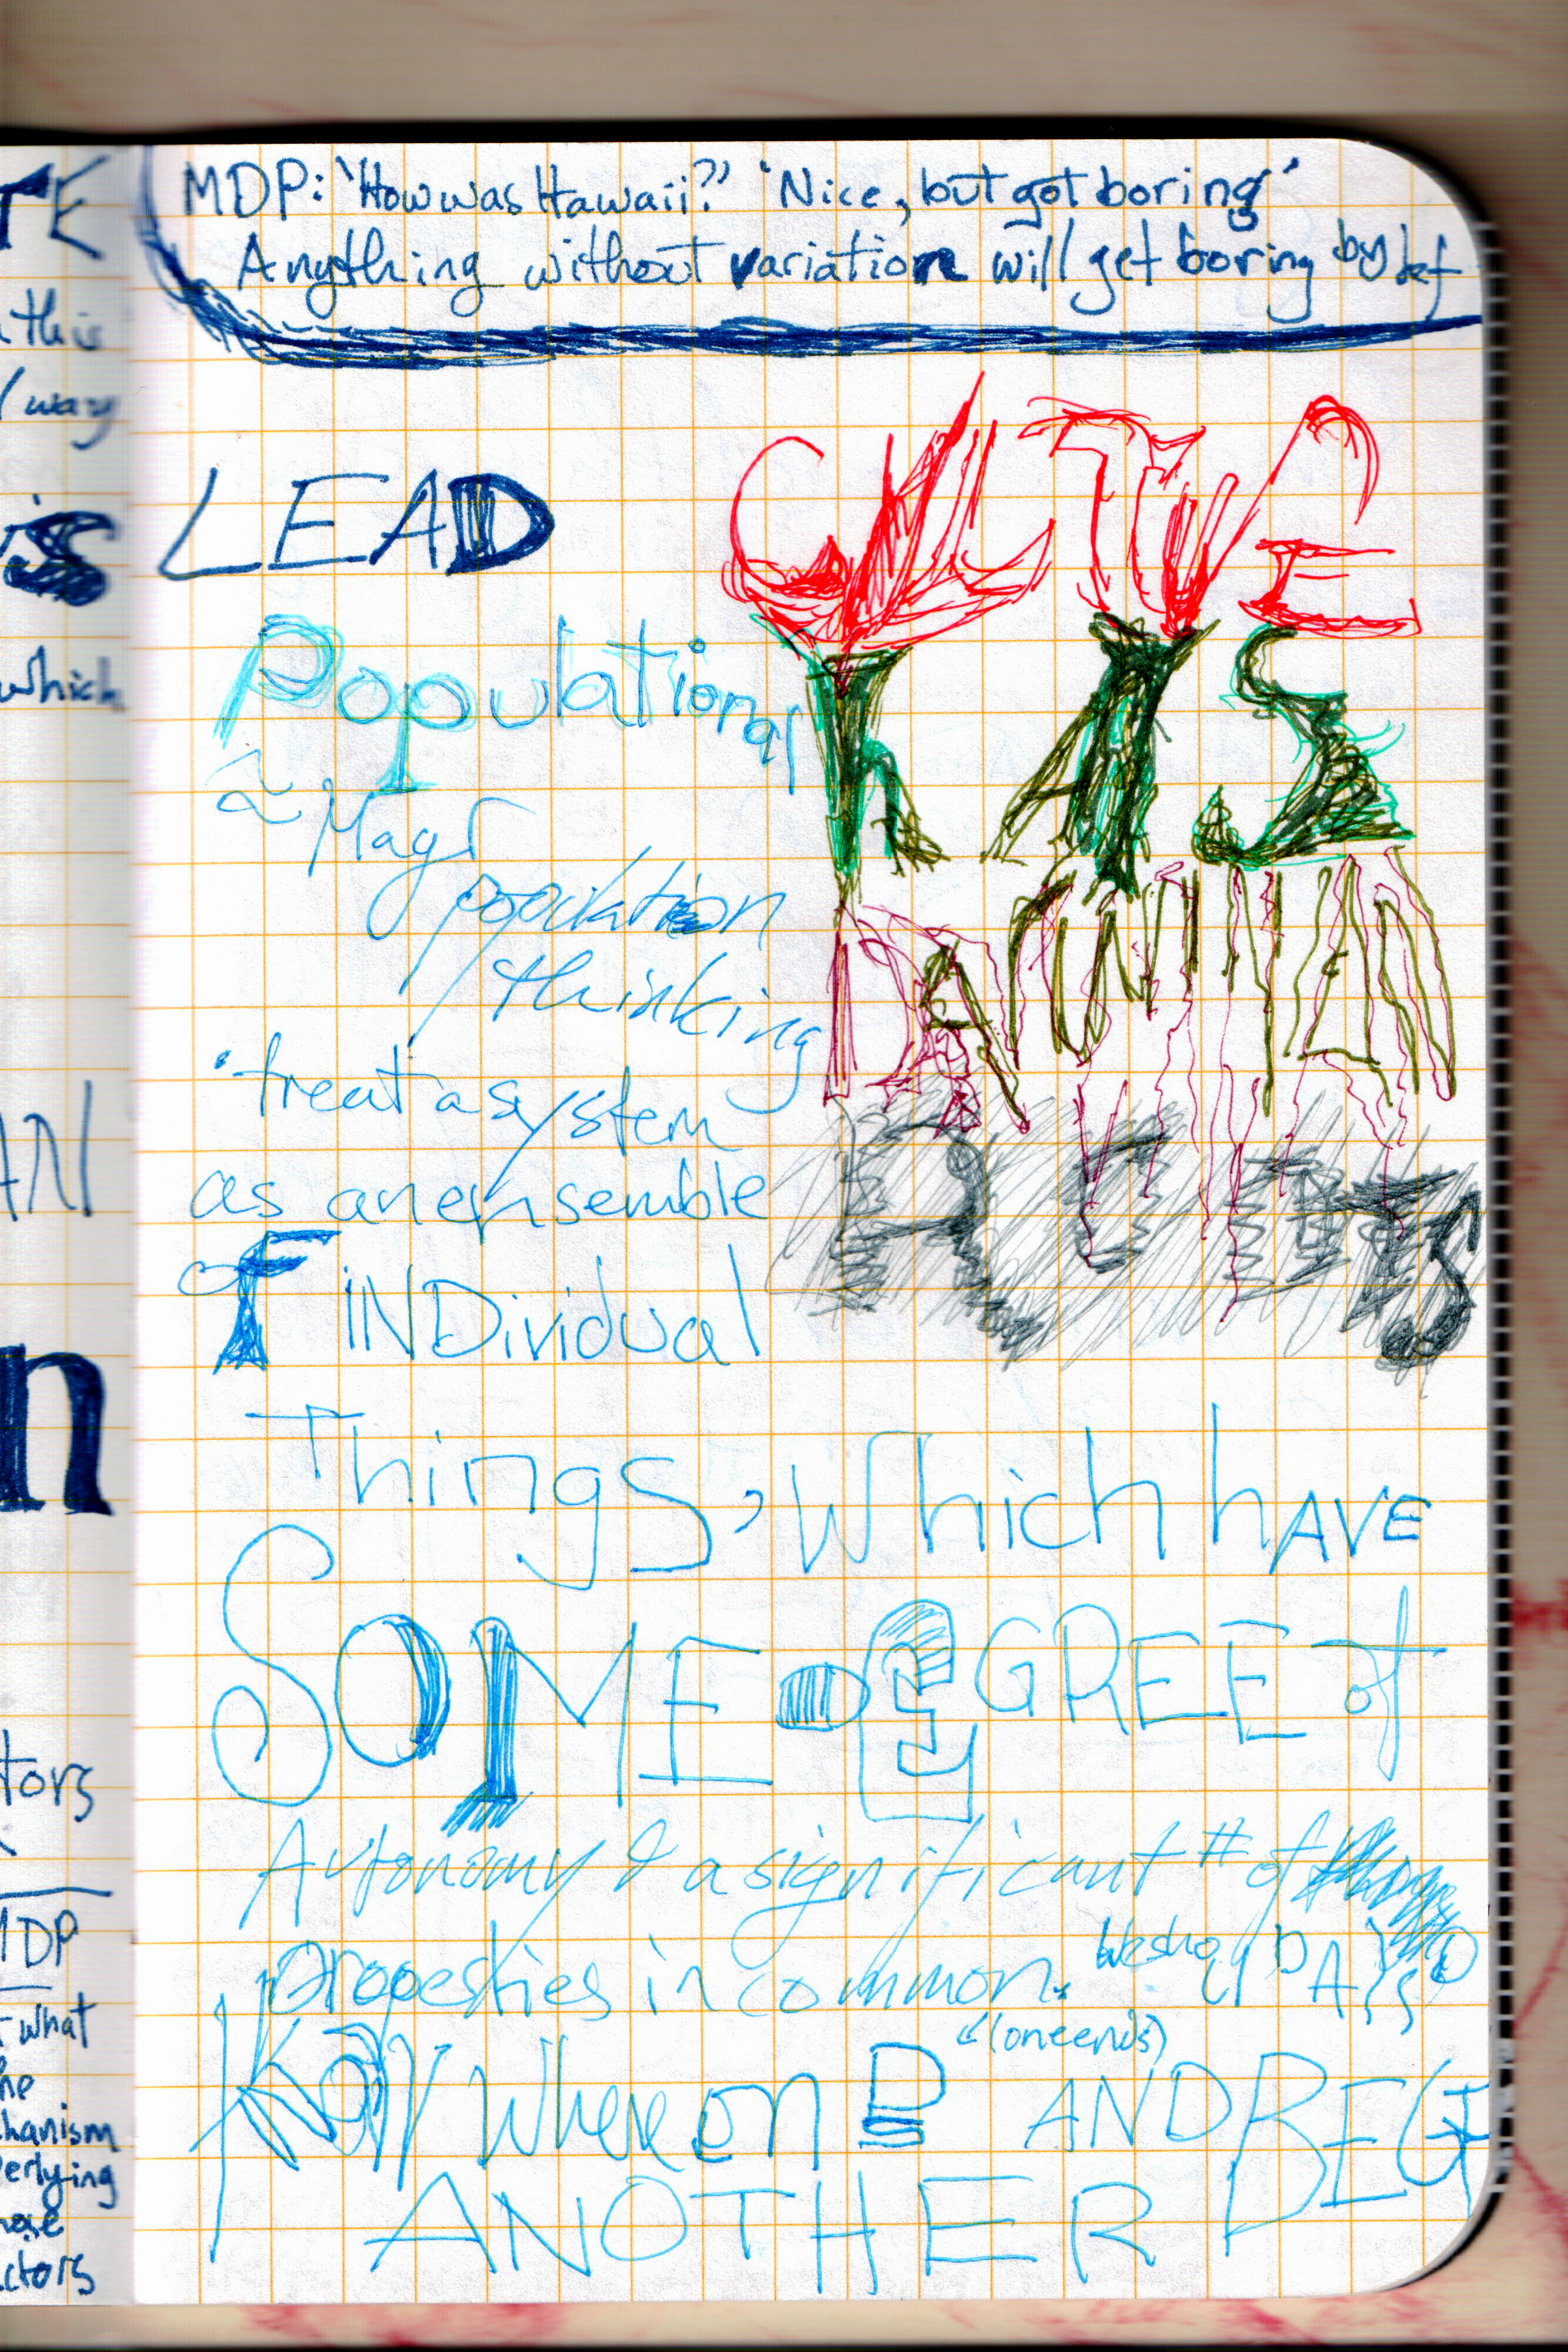 MDP: 'How was Hawaii?' 'Nice, but got boring'
Anything without variation will get boring by def
LEAD
CULTURE
HAS
DARWINIAN
ROOTS
Populational
≈ Mayr
population
thinking
'treat a system
as an ensemble
of INDividual
Things, which hAVE
SOME DEGREE of
Autonomy & a significant # of
properties in common.
"(one ends)
Okay where on D AND BEG
ANOTHER
TE
this
/ way
is
which
AN
n
tors
MDP
what
he
chanism
derlying
hose
ctors